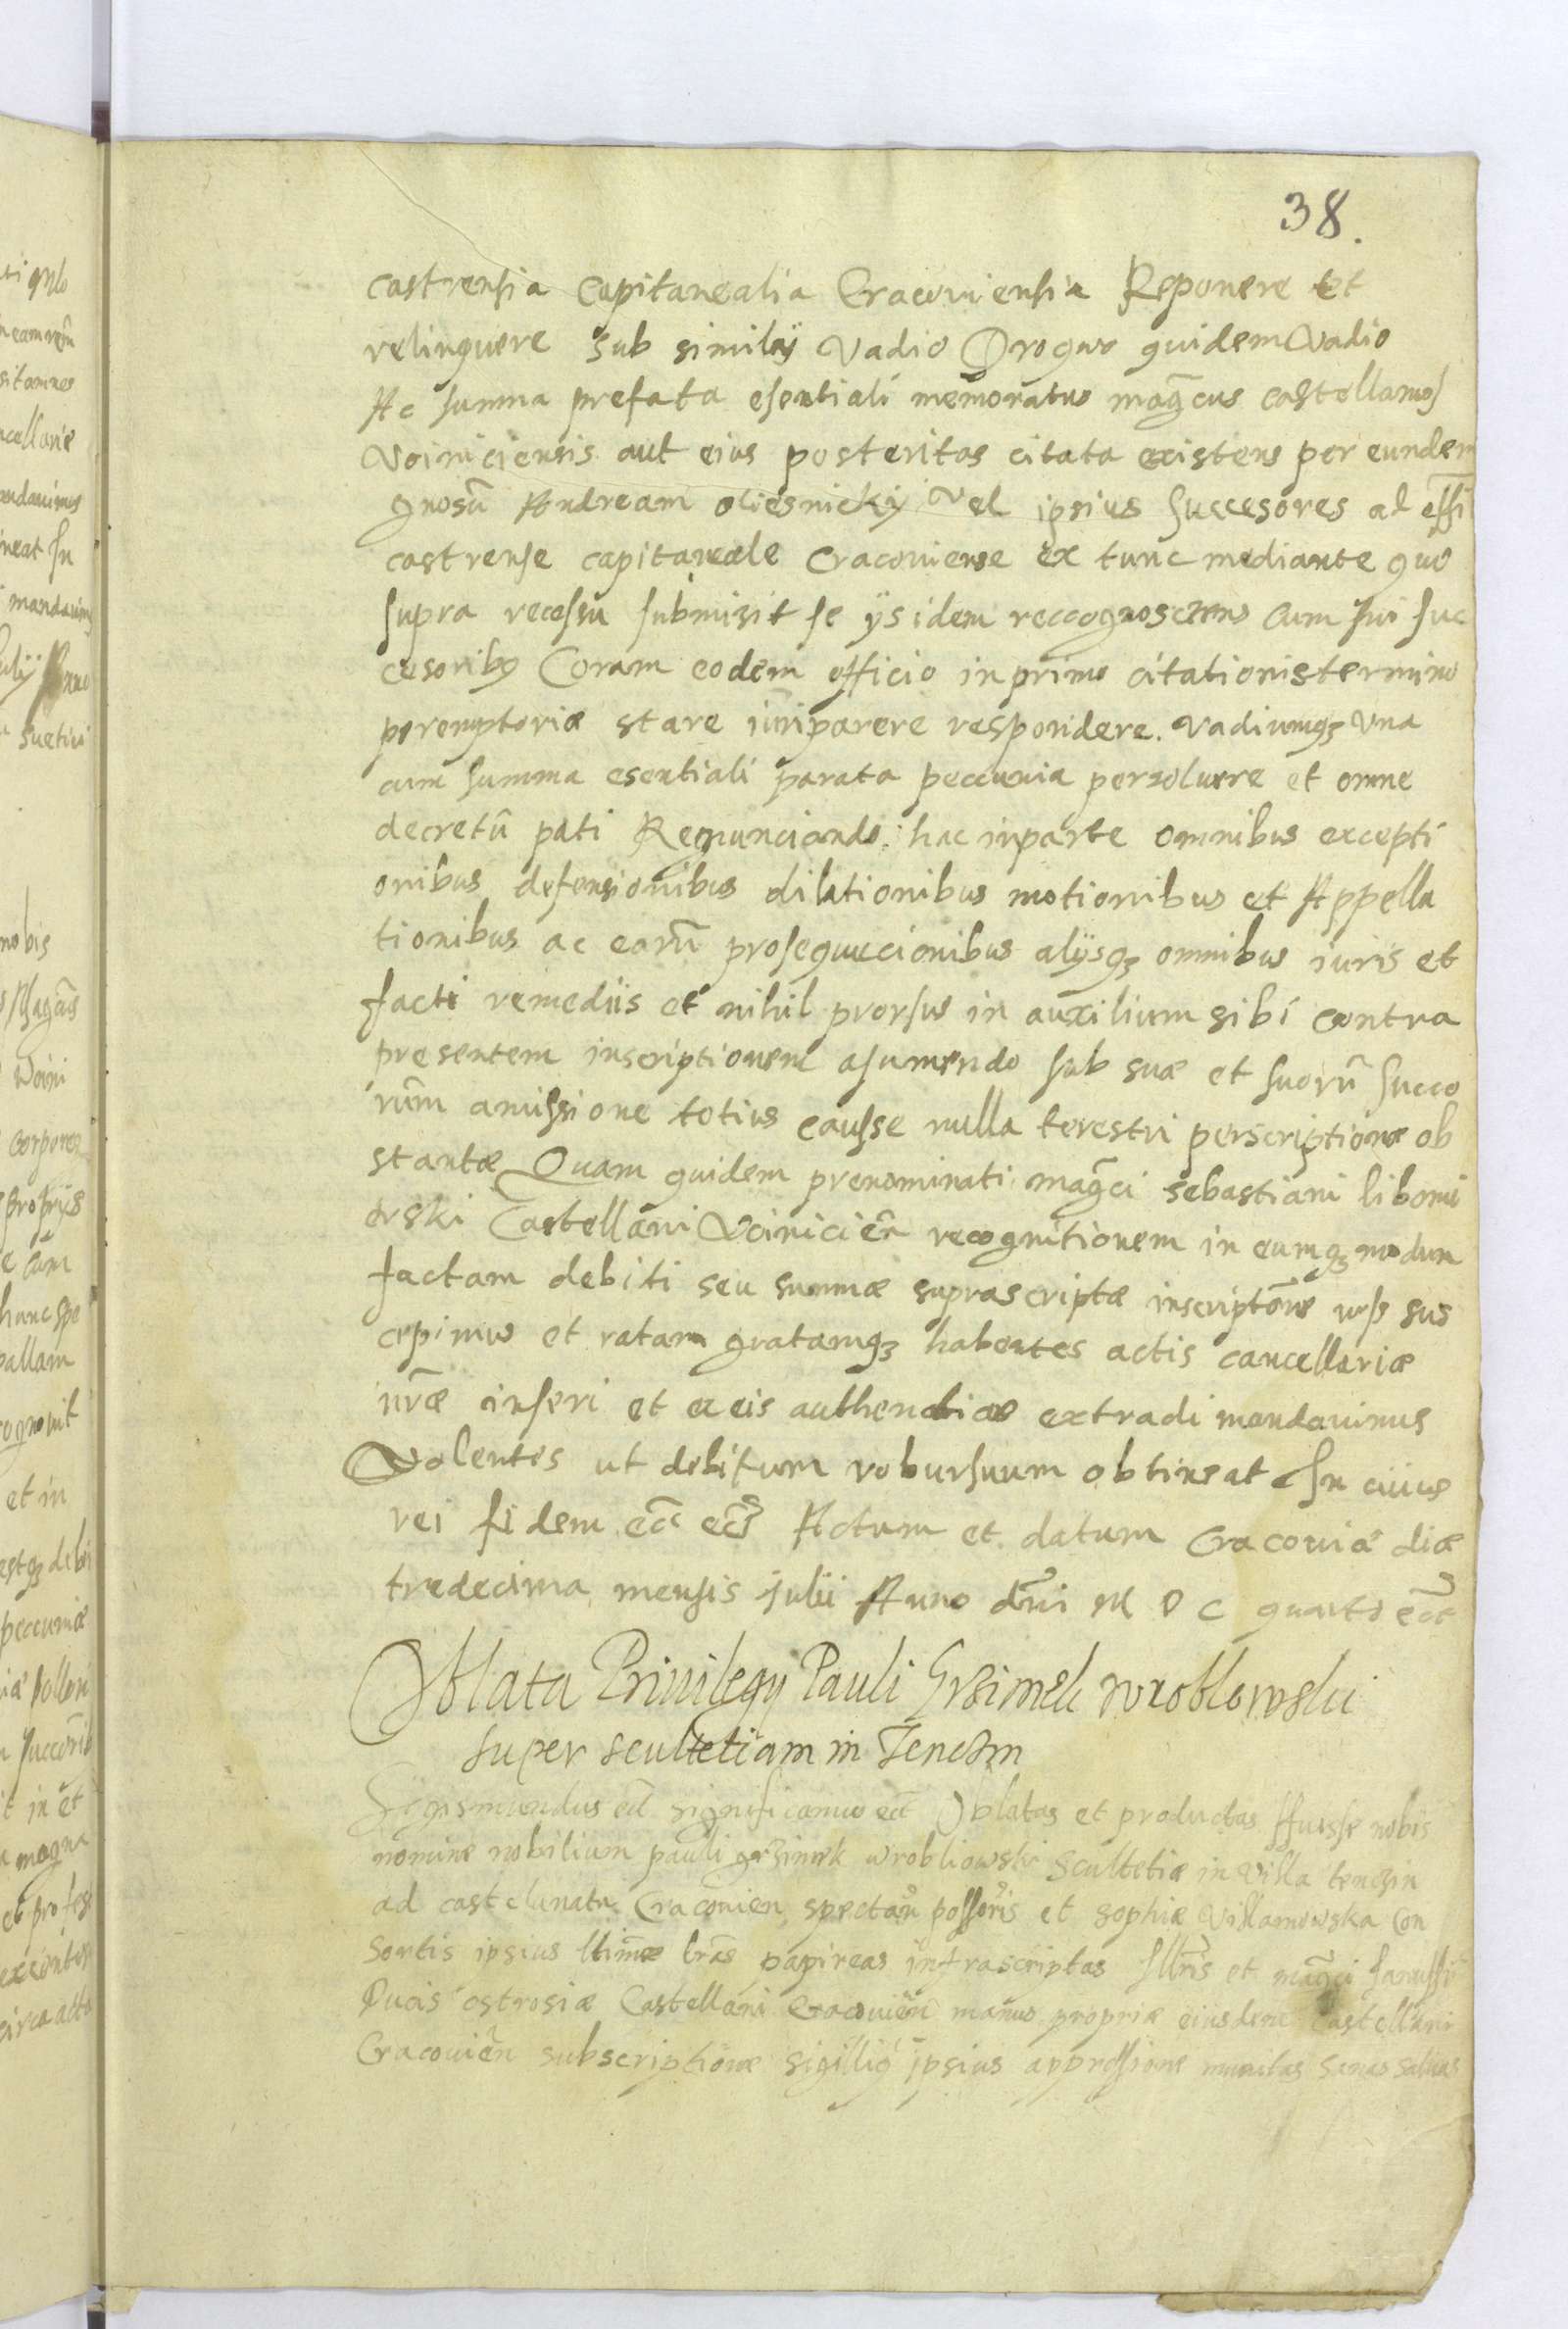 38.
castrensia Capitanealia Cracoviensia Reponere et
relinquere sub simily Vadio Pro quo quidem Vadio
Ac summa prefata esentiali memoratus magcus castellanus
Voiniciensis aut eius posteritas citata existens per eundem
gnosū Andream oliesnicky Vel ipsius successores ad offi
castrense capitaneale Cracoviense ex tunc mediante quo
supra recessu submisit se ys idem reccognoscens Cum sui suc
cesoribq Coram eodem officio in primo citationis termino
peremptoriæ stare iuri parere respondere. Vadiumqз Vna
cum summa esentiali parata peccunia persoluere et omne
decretū pati Renunciando hac in parte omnibus excepti
onibus defensionibus dilationibus motionibus et Appella
tionibus ac earū prosequucionibus alijsqз omnibus iuris et
facti remediis et nihil prorsus in auxilium sibi contra
presentem inscriptionem asumendo sub suæ et suorū succo
rum amissione totius causse nulla terestri perscriptione ob
stantæ Quam quidem prenominati magci sebastiani libomi
erski Castellani Voinicien recognitionem in eumqз modum
factam debiti seu summæ suprascriptæ inscriptōne sus
cepimus et ratam gratamqз habentes actis cancellariæ
nr̄æ inseri et ex eis authenticæ extradi mandavimus
Volentes ut debitum robur suum obtineat In cuius
rei fidem ect ect Actum et datum Cracoviæ diæ
tredecima mensis iulii Anno dn̄i M D C quarto ect
Oblata Privilegy Pauli Grzimek wroblowski
super scultetiam in Tenczin
Sigismundus ect significamus ect Oblatas et productas ffuisse nobis
nomine nobilium pauli grzimek wrobliowski Scultetiæ in Villa tenczin
ad castelanatū Cracovien spectan possoris et sophiæ Vislamowska Con
sortis ipsius ltimæ lras papireas infrascriptas Illris et magci Janussii
Ducis ostrosiæ Castellani Cracovien manus propriæ eiusdem Castellani
Cracovien subscriptionæ sigilliqз ipsius appressione munitas sanas salvas